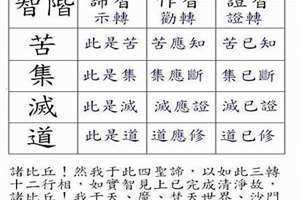 智階 示轉 勸轉 證轉
苦 此是苦 苦應知 苦已知
集 此是集 集應斷 集已斷
滅 此是滅 滅應證 滅已證
道 此是道 道應修 道已修
諸比丘！然我于此四聖諦，以如此三轉
十二行相，如實智見上已完成清淨故，
諸比丘！我于天、魔、梵天世界、沙門